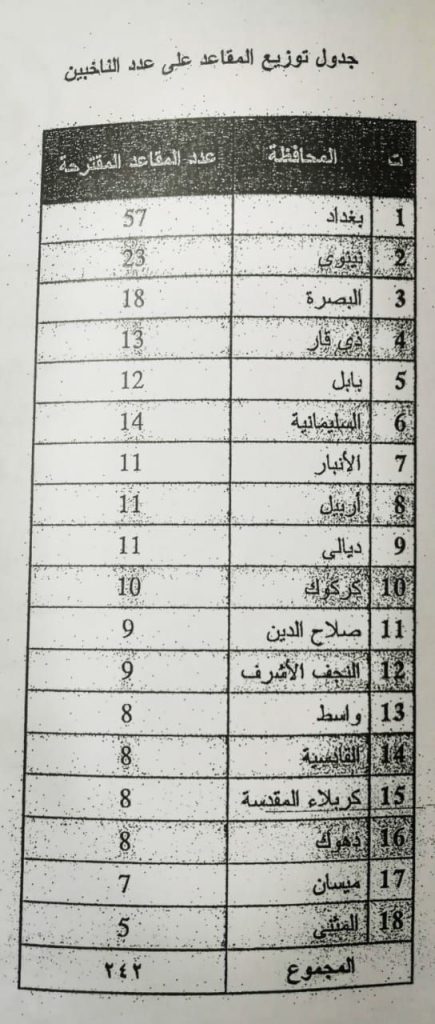 جدول توزيع المقاعد على عدد الناخبين
ت المحافظة عدد المقاعد المقترحة
1 بغداد 57
2 نينوى 23
3 البصرة 18
4 ذي قار 13
5 بابل 12
6 السليمانية 14
7 الأنبار 11
8 أربيل 11
9 ديالى 11
10 كركوك 10
11 صلاح الدين 9
12 النجف الأشرف 9
13 واسط 8
14 القادسية 8
15 كربلاء المقدسة 8
16 دهوك 8
17 ميسان 7
18 المثنى 5
المجموع ٢٤٢